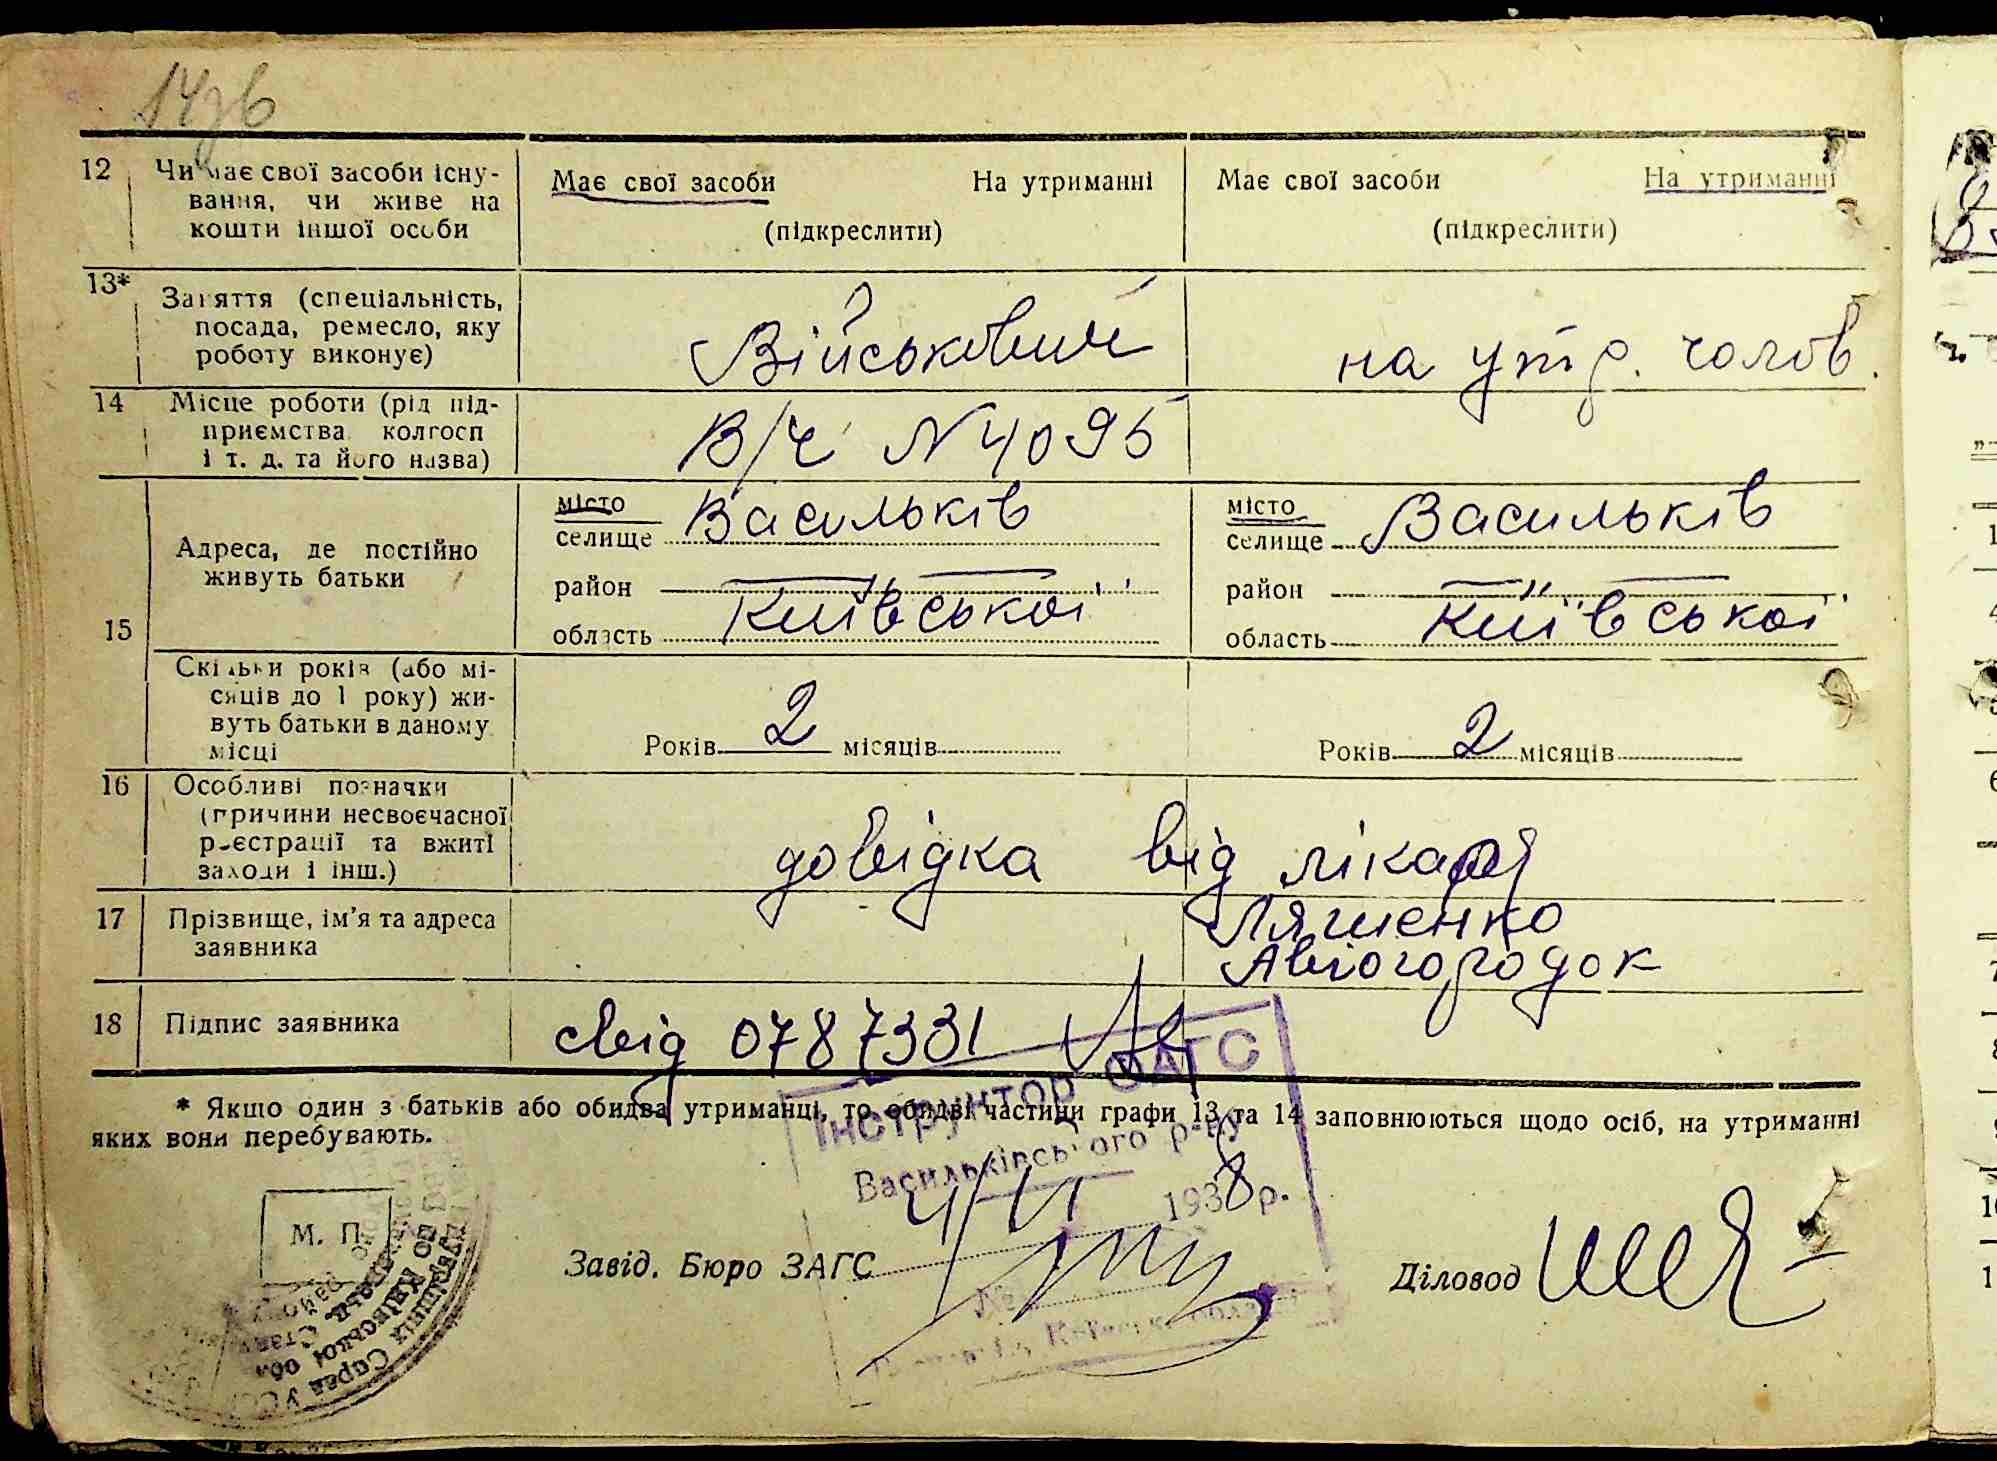 147б
12 Чи має свої засоби існу-
вання, чи живе на
кошти іншої особи
Має свої засоби На утриманні
(підкреслити)
Має свої засоби На утриманні
(підкреслити)
13* Заняття (спеціальність,
посада, ремесло, яку
роботу виконує)
Військовий
на утр. чолов.
14 Місце роботи (рід під-
приємства колгосп
і т. д. та його назва)
В/ч N 4095
15
Адреса, де постійно
живуть батьки
місто
селище Васильків
район
область Київської
місто
селище Васильків
район
область Київської
Скільки років (або мі-
сяців до 1 року) жи-
вуть батьки в даному
місці
Років 2 місяців
Років 2 місяців
16 Особливі позначки
(причини несвоєчасної
реєстрації та вжиті
заходи і інш.)
довідка від лікаря
17 Прізвище, ім'я та адреса
заявника
Ляшенко
Авіогородок
18 Підпис заявника
свід 0787331
* Якщо один з батьків або обидва утриманці, то обидві частини графи 13 та 14 заповнюються щодо осіб, на утриманні
яких вони перебувають.
Інструктор ОАГС
Васильківського р-ну
4/VI 1938 р.
М. П.
Завід. Бюро ЗАГС
Діловод
№